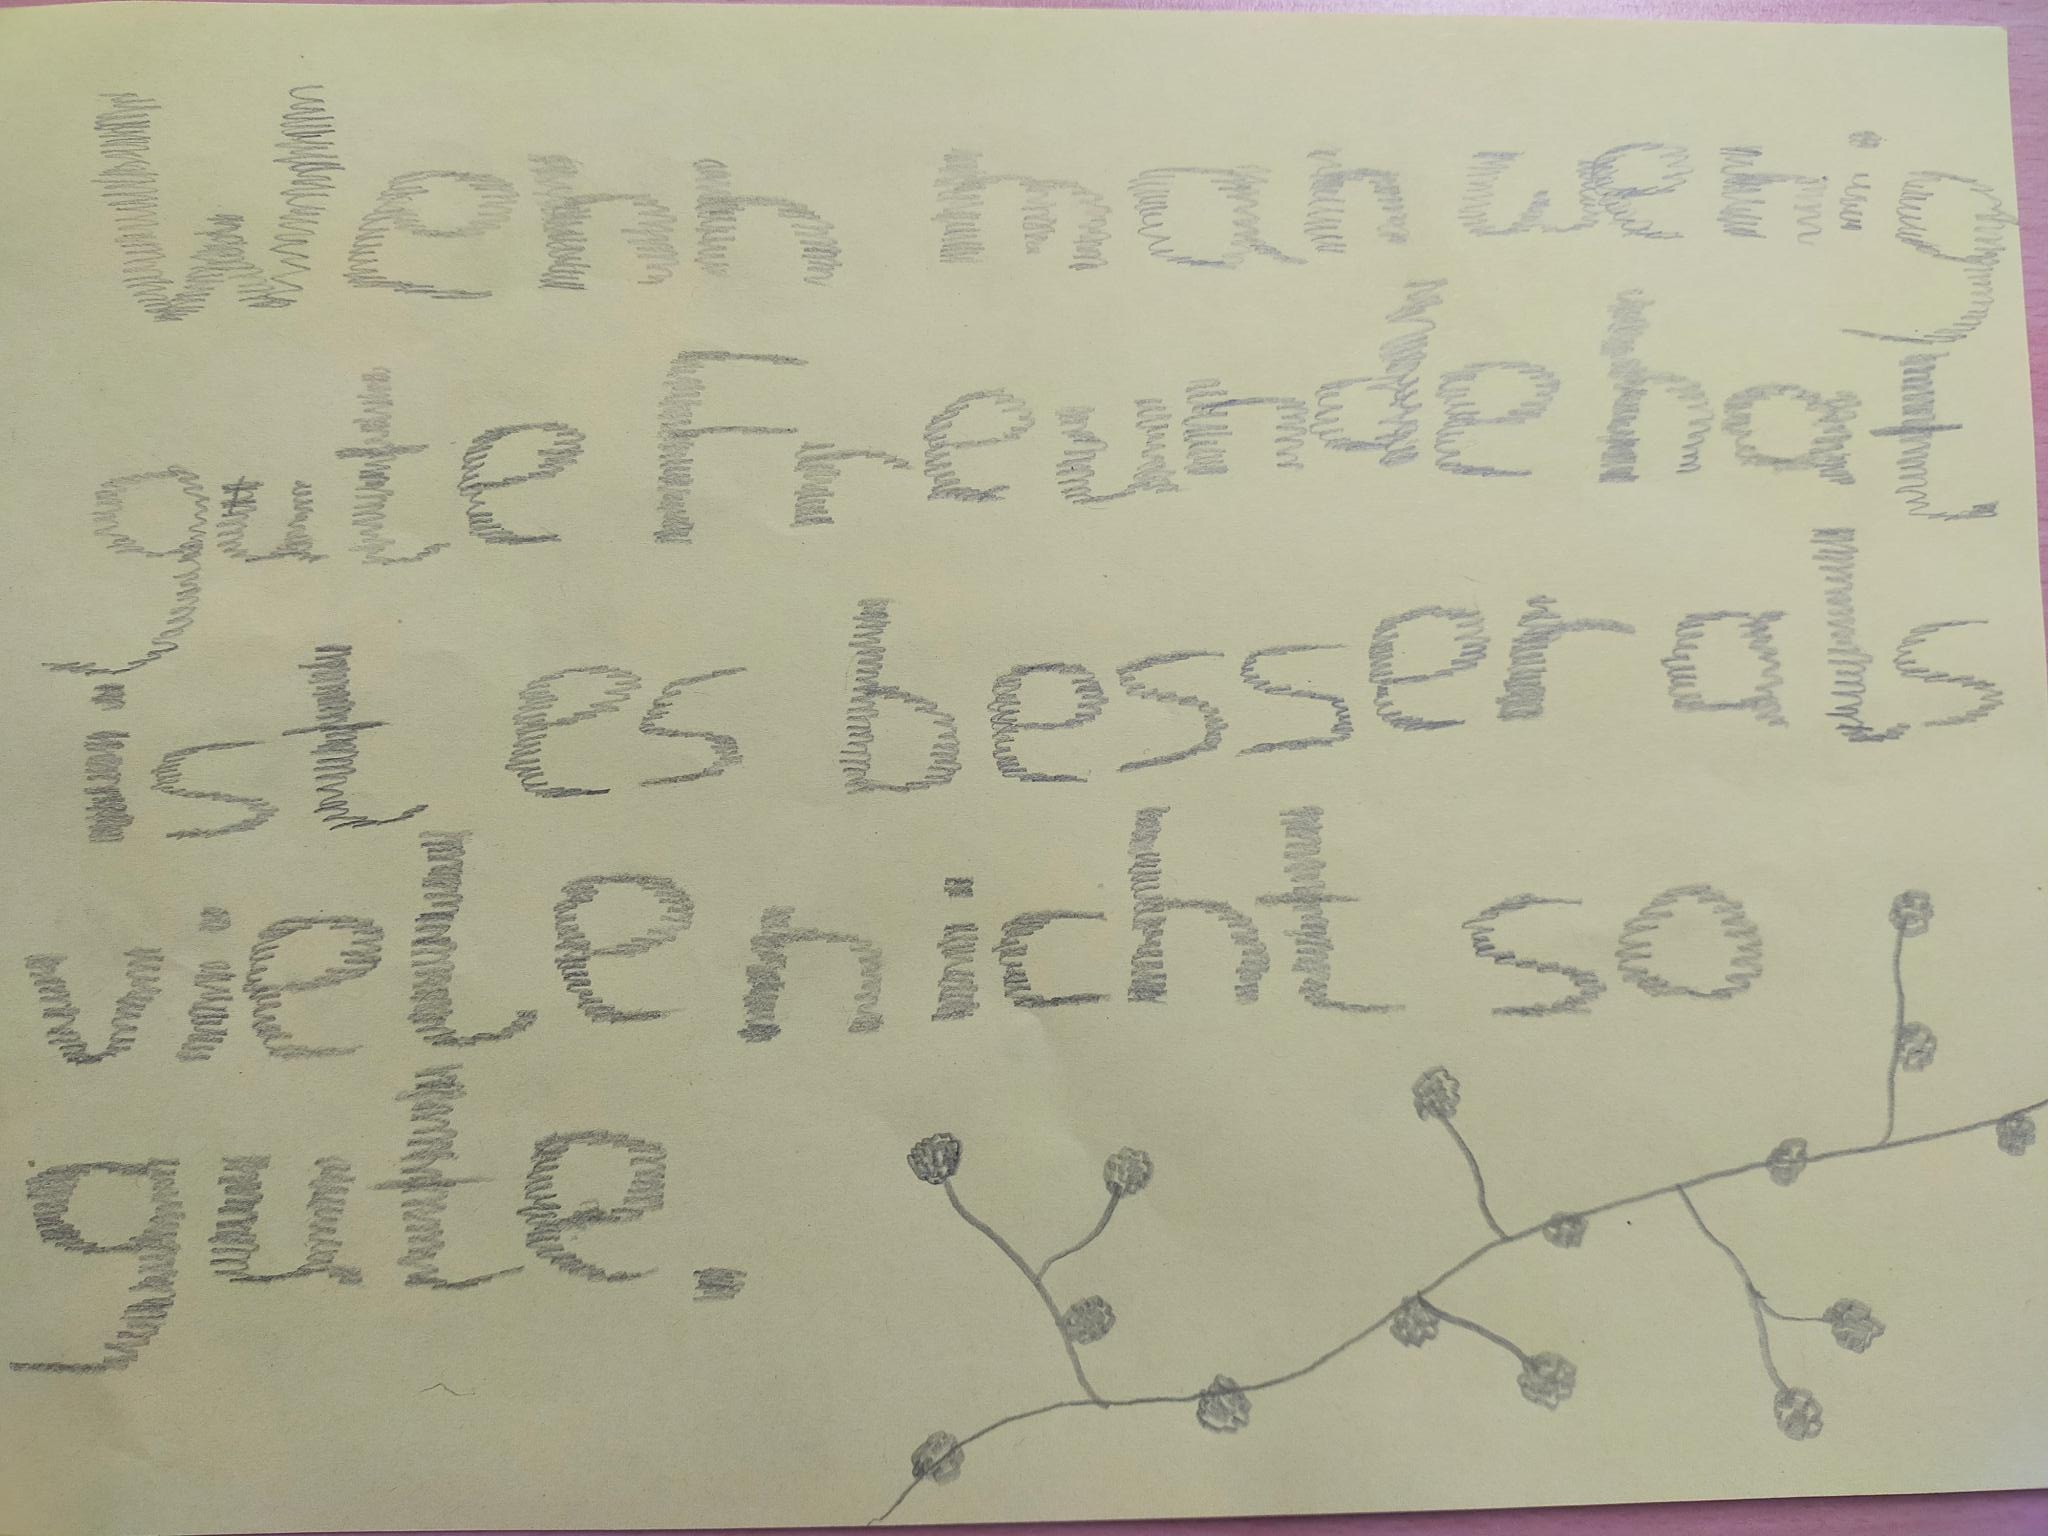 Wenn man wenig
gute Freunde hat,
ist es besser als
viele nicht so
gute.